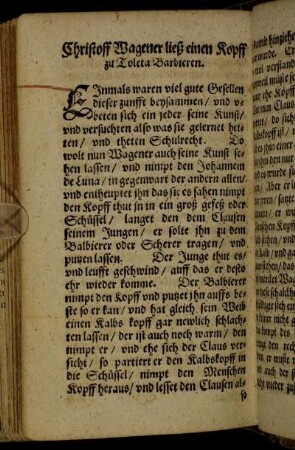 Christoff Wagener ließ einen Kopff
zu Toleta Barbieren.
EJnmals waren viel gute Gesellen
dieser zunfft beysammen/ vnd v-
beten sich ein jeder seine Kunst/
vnd versuchten also was sie gelernet het-
ten/ vnd theten Schulrecht. Do
wolt nun Wagener auch seine Kunst se-
hen lassen/ vnd nimpt den Johannem
de Luna/ in gegenwart der andern allen/
vnd entheuptet jhn das sie es sahen nimpt
den Kopff thut jn in ein groß gefeß oder
Schüssel/ langet den dem Clausen
seinem Jungen/ er solte jhn zu dem
Balbierer oder Scherer tragen/ vnd
putzen lassen. Der Junge thut es/
vnd leufft geschwind/ auff das er desto
ehr wieder komme. Der Balbierer
nimpt den Kopff vnd putzet jhn auffs be-
ste so er kan/ vnd hat gleich sein Weib
einen Kalbs kopff gar newlich schlach-
ten lassen/ der ist auch noch warm/ den
nimpt er/ vnd ehe sich der Claus ver-
sicht/ so partiert er den Kalbskopff in
die Schüssel/ nimpt den Menschen
Kopff heraus/ vnd lesset den Clausen al-
so